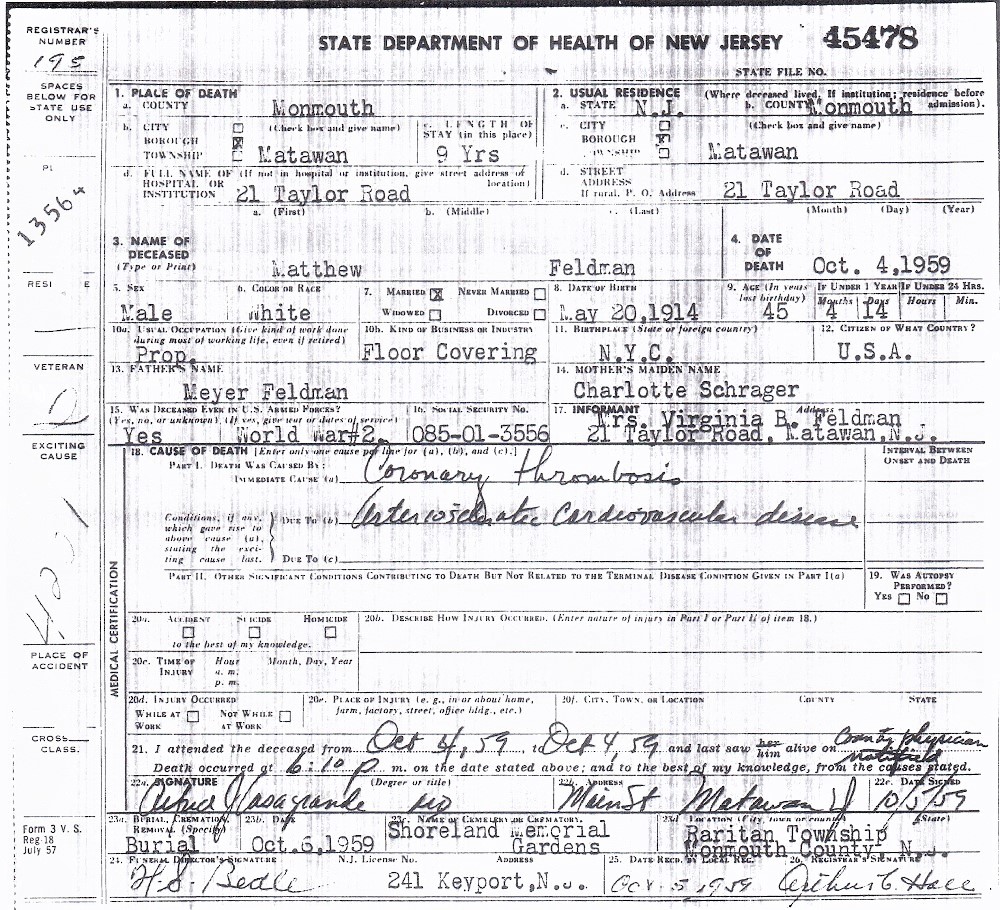 REGISTRAR'S NUMBER
195
STATE DEPARTMENT OF HEALTH OF NEW JERSEY 45478
STATE FILE NO.
SPACES BELOW FOR STATE USE ONLY
1. PLACE OF DEATH
a. COUNTY Monmouth
b. CITY (Check box and give name)
BOROUGH ☒
TOWNSHIP Matawan
c. LENGTH OF STAY (in this place)
9 Yrs
d. FULL NAME OF (If not in hospital or institution, give street address or location)
HOSPITAL OR INSTITUTION 21 Taylor Road
2. USUAL RESIDENCE (Where deceased lived. If institution; residence before admission).
a. STATE N.J. b. COUNTY Monmouth
c. CITY (Check box and give name)
BOROUGH ☒
TOWNSHIP Matawan
d. STREET ADDRESS
If rural, P. O. Address 21 Taylor Road
13564
3. NAME OF DECEASED
(Type or Print)
a. (First) b. (Middle) c. (Last)
Matthew Feldman
4. DATE OF DEATH
(Month) (Day) (Year)
Oct. 4,1959
RESI E
5. SEX
Male
6. COLOR OR RACE
White
7. MARRIED ☒ NEVER MARRIED ☐
WIDOWED ☐ DIVORCED ☐
8. DATE OF BIRTH
May 20,1914
9. AGE (In years last birthday)
45
IF UNDER 1 YEAR
Months Days
4 14
IF UNDER 24 HRS.
Hours Min.
10a. USUAL OCCUPATION (Give kind of work done during most of working life, even if retired)
Prop.
10b. KIND OF BUSINESS OR INDUSTRY
Floor Covering
11. BIRTHPLACE (State or foreign country)
N.Y.C.
12. CITIZEN OF WHAT COUNTRY?
U.S.A.
VETERAN
13. FATHER'S NAME
Meyer Feldman
14. MOTHER'S MAIDEN NAME
Charlotte Schrager
15. WAS DECEASED EVER IN U.S. ARMED FORCES?
(Yes, no, or unknown) (If yes, give war or dates of service)
Yes World War#2.
16. SOCIAL SECURITY NO.
085-01-3556
17. INFORMANT Address
Mrs. Virginia B. Feldman
21 Taylor Road, Matawan,N.J.
EXCITING CAUSE
MEDICAL CERTIFICATION
18. CAUSE OF DEATH [Enter only one cause per line for (a), (b), and (c).]
INTERVAL BETWEEN ONSET AND DEATH
PART I. DEATH WAS CAUSED BY:
IMMEDIATE CAUSE (a) Coronary thrombosis
Conditions, if any, which gave rise to above cause (a), stating the exciting cause last.
DUE TO (b) Arteriosclerotic Cardiovascular disease
DUE TO (c)
PART II. OTHER SIGNIFICANT CONDITIONS CONTRIBUTING TO DEATH BUT NOT RELATED TO THE TERMINAL DISEASE CONDITION GIVEN IN PART I(a)
19. WAS AUTOPSY PERFORMED?
YES ☐ NO ☐
20a. ACCIDENT SUICIDE HOMICIDE
to the best of my knowledge.
20b. DESCRIBE HOW INJURY OCCURRED. (Enter nature of injury in Part I or Part II of item 18.)
PLACE OF ACCIDENT
20c. TIME OF INJURY
Hour a. m. p. m.
Month, Day, Year
20d. INJURY OCCURRED
WHILE AT WORK ☐ NOT WHILE AT WORK ☐
20e. PLACE OF INJURY (e. g., in or about home, farm, factory, street, office bldg., etc.)
20f. CITY, TOWN, OR LOCATION COUNTY STATE
CROSS CLASS.
21. I attended the deceased from Oct 4, 59 to Oct 4, 59 and last saw her him alive on County physician notified
Death occurred at 6:10 p m. on the date stated above; and to the best of my knowledge, from the causes stated.
22a. SIGNATURE (Degree or title)
MD
22b. ADDRESS
Main St Matawan NJ
22c. DATE SIGNED
10/5/59
23a. BURIAL, CREMATION, REMOVAL (Specify)
Burial
23b. DATE
Oct.6,1959
23c. NAME OF CEMETERY OR CREMATORY.
Shoreland Memorial Gardens
23d. LOCATION (City, town or county) (State)
Raritan Township
Monmouth County, N.J.
Form 3 V. S.
Reg 18
July 57
24. FUNERAL DIRECTOR'S SIGNATURE N.J. License No. ADDRESS
H.S. Bedle 241 Keyport,N.J.
25. DATE RECD. BY LOCAL REG.
Oct. 5, 1959
26. REGISTRAR'S SIGNATURE
Arthur C. Hall